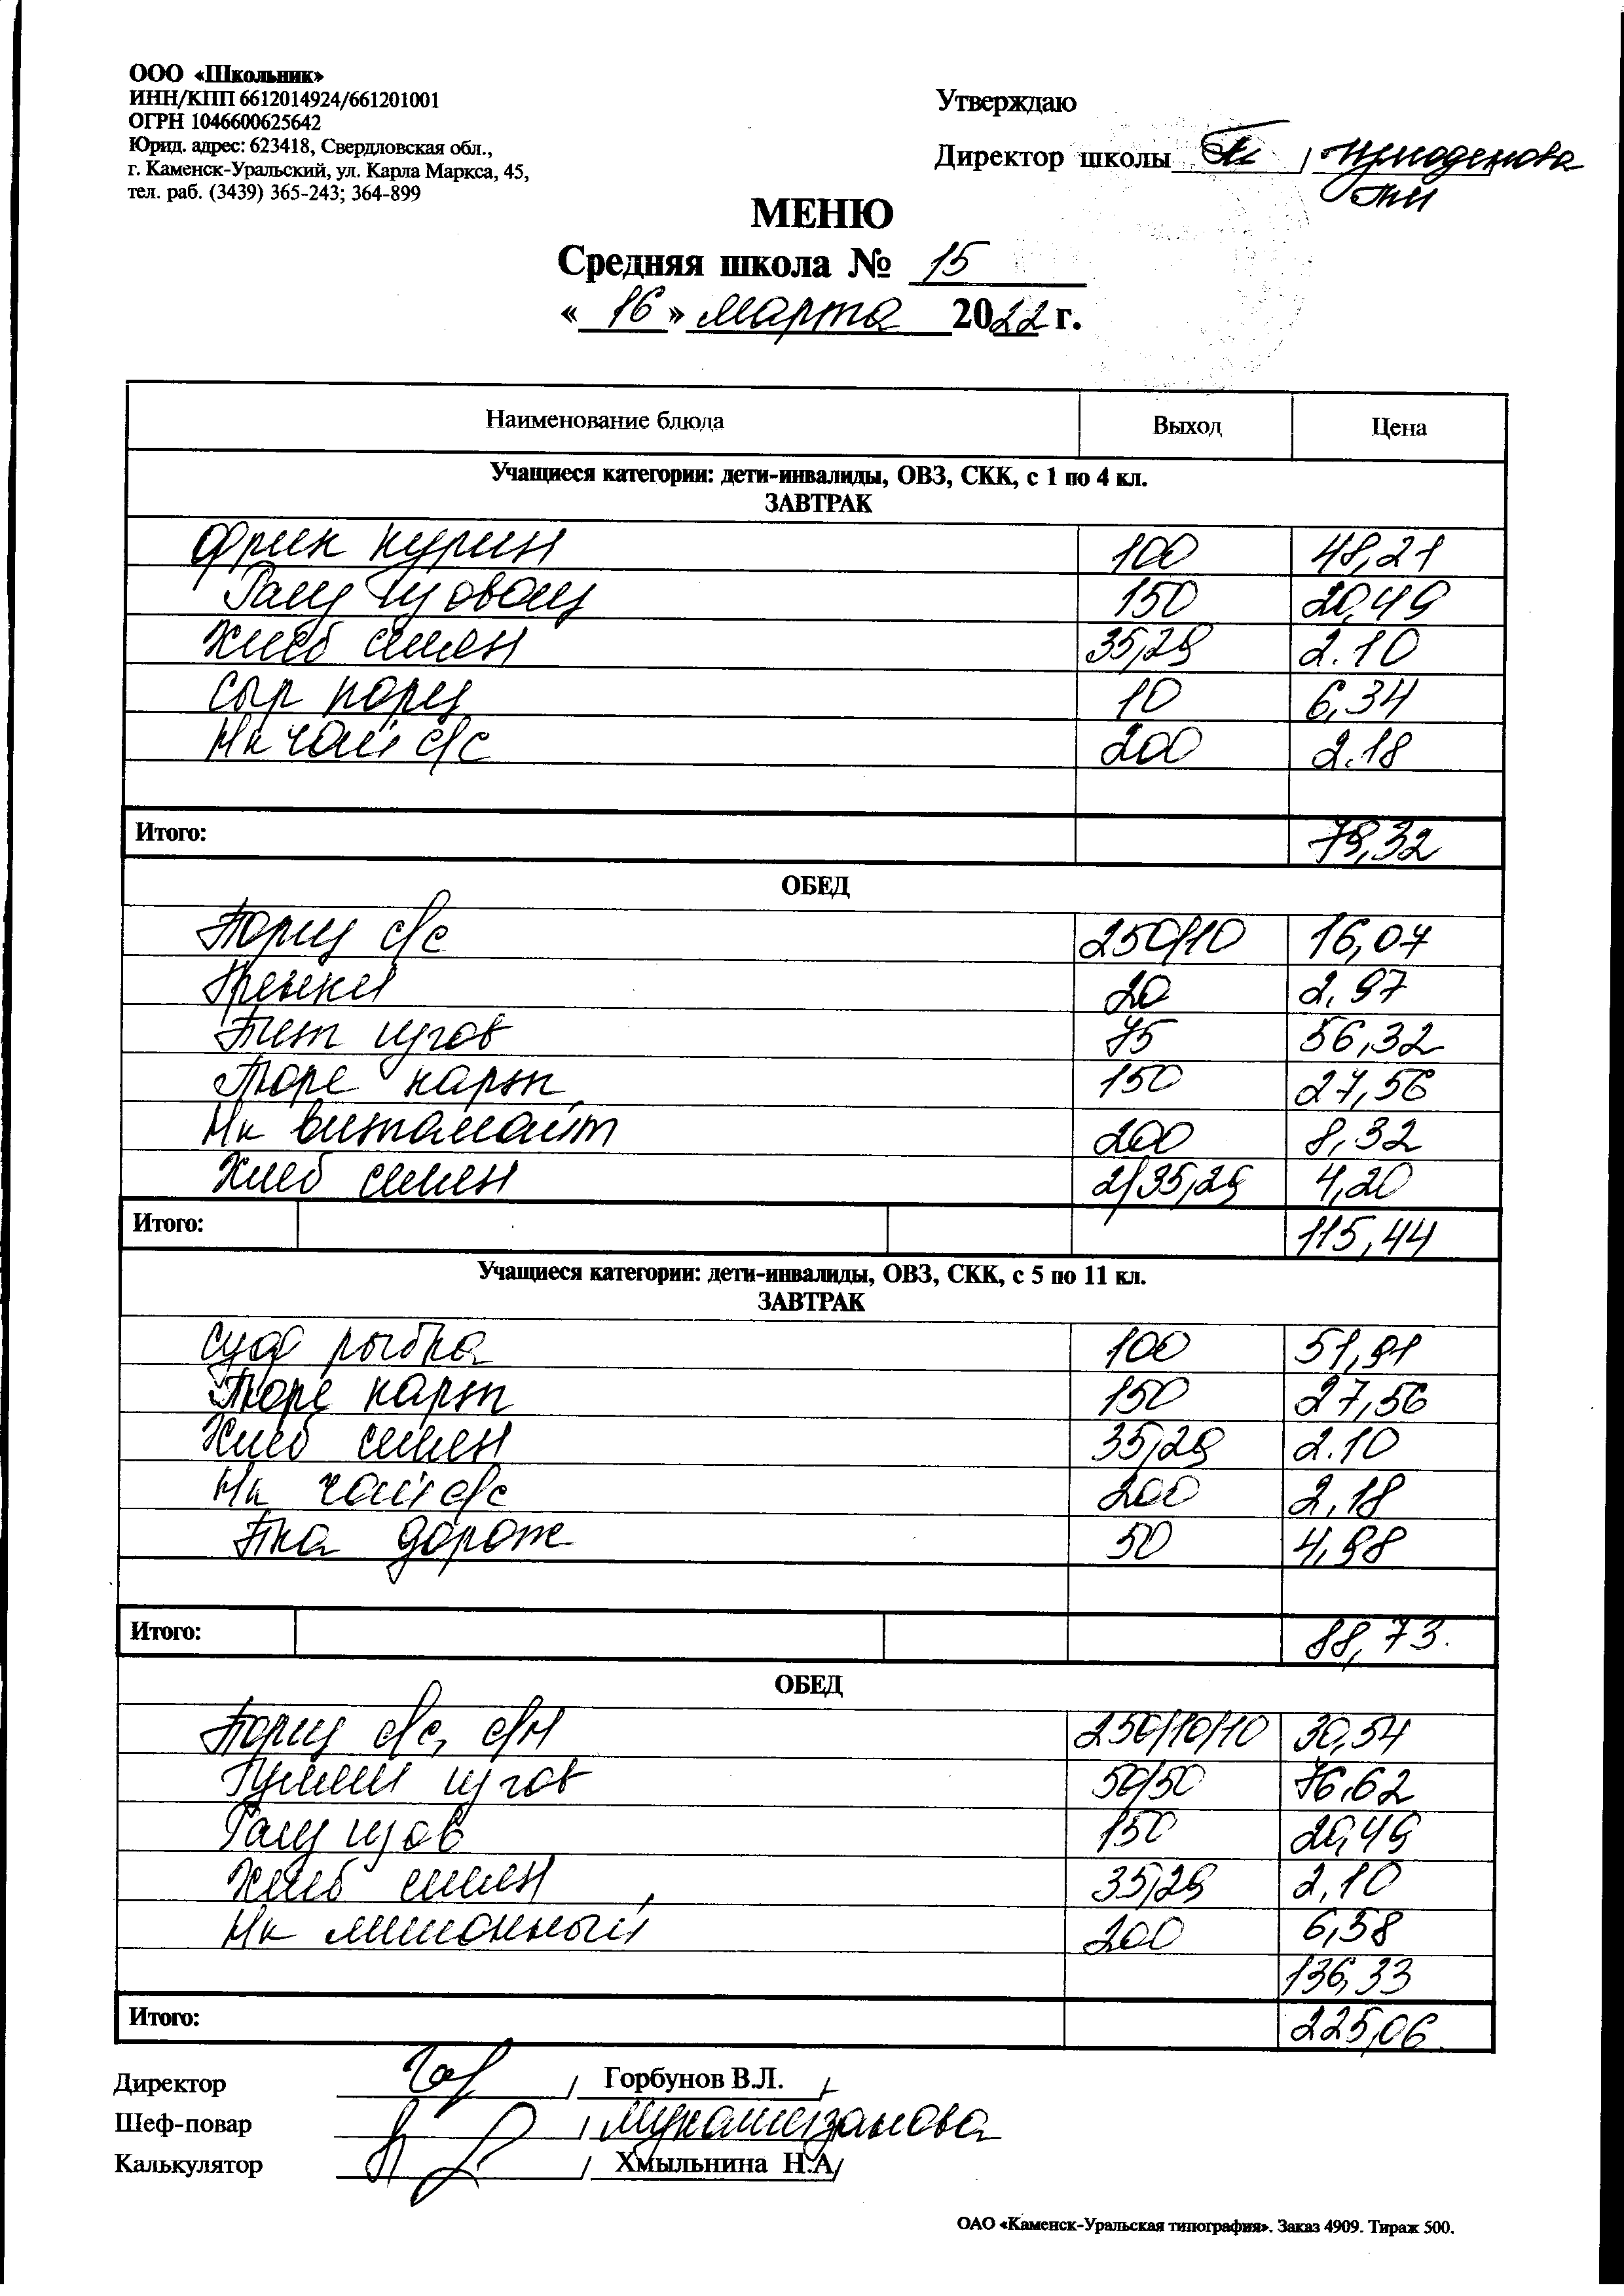 ООО «Школьник»
ИНН/КПП 6612014924/661201001
ОГРН 1046600625642
Юрид. адрес: 623418, Свердловская обл.,
г. Каменск-Уральский, ул. Карла Маркса, 45,
тел. раб. (3439) 365-243; 364-899
Утверждаю
Директор школы /
МЕНЮ
Средняя школа № 15
« 16 » марта 2022 г.
Наименование блюда Выход Цена
Учащиеся категории: дети-инвалиды, ОВЗ, СКК, с 1 по 4 кл.
ЗАВТРАК
Фрик курин 100 48,21
150 20,49
Хлеб 35,29 2.10
Сыр порц 10 6,34
Нк чай с/с 200 2.18
Итого: 79,32
ОБЕД
Борщ с/с 250/10 16,07
Гренки 20 2,97
75 56,32
Пюре карт 150 27,56
Нк витамайт 200 8,32
Хлеб 2/35,29 4,20
Итого: 115,44
Учащиеся категории: дети-инвалиды, ОВЗ, СКК, с 5 по 11 кл.
ЗАВТРАК
Суф рыбка 100 51,91
Пюре карт 150 27,56
Хлеб 35,29 2.10
Нк чай с/с 200 2,18
Бка дорож 50 4,98
Итого: 88,73
ОБЕД
Борщ с/с, с/м 250/10/10 30,54
Гуляш 50/50 76,62
150 20,49
Хлеб 35,29 2,10
Нк лимонный 200 6,58
136,33
Итого: 225,06
Директор / Горбунов В.Л. /
Шеф-повар /
Калькулятор / Хмыльнина Н.А/
ОАО «Каменск-Уральская типография». Заказ 4909. Тираж 500.